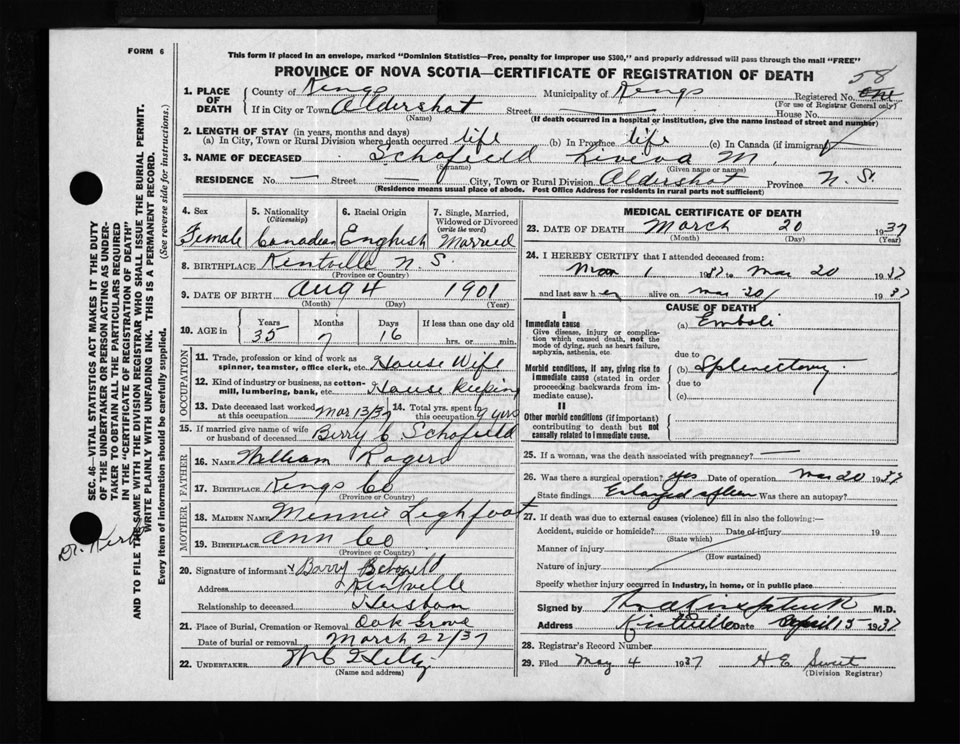 FORM 6
This form if placed in an envelope, marked "Dominion Statistics—Free, penalty for improper use $300," and properly addressed will pass through the mail "FREE"
PROVINCE OF NOVA SCOTIA—CERTIFICATE OF REGISTRATION OF DEATH
58
1. PLACE OF DEATH
County of Kings Municipality of Kings Registered No. one
(For use of Registrar General only)
If in City or Town Aldershot Street House No.
(Name) (If death occurred in a hospital or institution, give the name instead of street and number)
2. LENGTH OF STAY (in years, months and days)
(a) In City, Town or Rural Division where death occurred life (b) In Province life (c) In Canada (if immigrant)
3. NAME OF DECEASED Schofield M.
(Surname) (Given name or names)
RESIDENCE No. — Street — City, Town or Rural Division Aldershot Province N.S.
(Residence means usual place of abode. Post Office Address for residents in rural parts not sufficient)
4. Sex Female
5. Nationality (Citizenship) Canadian
6. Racial Origin English
7. Single, Married, Widowed or Divorced (write the word) Married
8. BIRTHPLACE Kentville N.S.
(Province or Country)
9. DATE OF BIRTH Aug 4 1901
(Month) (Day) (Year)
10. AGE in Years 35 Months 7 Days 16 If less than one day old hrs. or min.
OCCUPATION
11. Trade, profession or kind of work as spinner, teamster, office clerk, etc. House Wife
12. Kind of industry or business, as cotton-mill, lumbering, bank, etc. House Keeping
13. Date deceased last worked at this occupation Mar 13/37 14. Total yrs. spent in this occupation 9 yrs
15. If married give name of wife or husband of deceased Berry C Schofield
FATHER
16. NAME William Rogers
17. BIRTHPLACE Kings Co
(Province or Country)
MOTHER
18. MAIDEN NAME Minnie Leghfoot
19. BIRTHPLACE Ann Co
(Province or Country)
20. Signature of informant x Barry
Address Kentville
Relationship to deceased Husban
21. Place of Burial, Cremation or Removal Oak Grove
Date of burial or removal March 22/37
22. UNDERTAKER W C
(Name and address)
MEDICAL CERTIFICATE OF DEATH
23. DATE OF DEATH March 20 1937
(Month) (Day) (Year)
24. I HEREBY CERTIFY that I attended deceased from:
Mar 1 1937 to Mar 20 1937
and last saw her alive on Mar 20/ 1937
CAUSE OF DEATH
I
Immediate cause
Give disease, injury or complication which caused death, not the mode of dying, such as heart failure, asphyxia, asthenia, etc.
(a) Emboli
due to
Morbid conditions, if any, giving rise to immediate cause (stated in order proceeding backwards from immediate cause)
(b) Splenectomy
due to
(c)
II
Other morbid conditions (if important) contributing to death but not causally related to immediate cause.
25. If a woman, was the death associated with pregnancy? —
26. Was there a surgical operation? yes Date of operation Mar 20 1937
State findings Enlarged spleen Was there an autopsy?
27. If death was due to external causes (violence) fill in also the following:—
Accident, suicide or homicide? Date of injury 19
(State which)
Manner of injury
(How sustained)
Nature of injury
Specify whether injury occurred in industry, in home, or in public place
Signed by M.D.
Address Kentville Date April 5 1937
28. Registrar's Record Number
29. Filed May 4 1937 H.E. Sweet
(Division Registrar)
SEC. 46—VITAL STATISTICS ACT MAKES IT THE DUTY
OF THE UNDERTAKER OR PERSON ACTING AS UNDERTAKER
TO OBTAIN ALL THE PARTICULARS REQUIRED
IN THE "CERTIFICATE OF REGISTRATION OF DEATH"
AND TO FILE THE SAME WITH THE DIVISION REGISTRAR WHO SHALL ISSUE THE BURIAL PERMIT.
WRITE PLAINLY WITH UNFADING INK. THIS IS A PERMANENT RECORD.
Every item of information should be carefully supplied. (See reverse side for instructions.)
Dr.